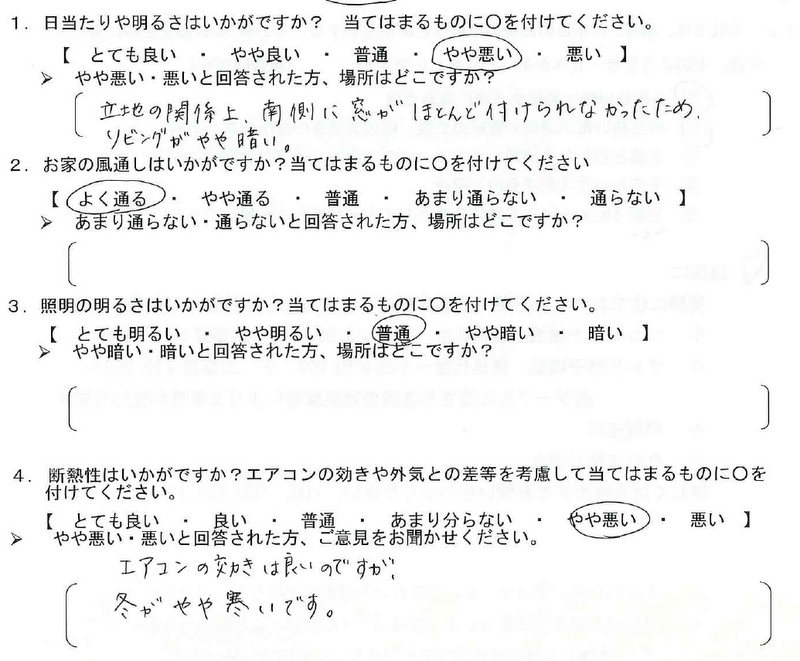 １．日当たりや明るさはいかがですか？　当てはまるものに〇を付けてください。
【　とても良い　・　やや良い　・　普通　・　やや悪い　・　悪い　】
➢　やや悪い・悪いと回答された方、場所はどこですか？
立地の関係上、南側に窓がほとんど付けられなかったため、
リビングがやや暗い。
２．お家の風通しはいかがですか？当てはまるものに〇を付けてください
【　よく通る　・　やや通る　・　普通　・　あまり通らない　・　通らない　】
➢　あまり通らない・通らないと回答された方、場所はどこですか？
３．照明の明るさはいかがですか？当てはまるものに〇を付けてください。
【　とても明るい　・　やや明るい　・　普通　・　やや暗い　・　暗い　】
➢　やや暗い・暗いと回答された方、場所はどこですか？
４．断熱性はいかがですか？エアコンの効きや外気との差等を考慮して当てはまるものに〇を
付けてください。
【　とても良い　・　良い　・　普通　・　あまり分らない　・　やや悪い　・　悪い　】
➢　やや悪い・悪いと回答された方、ご意見をお聞かせください。
エアコンの効きは良いのですが、
冬がやや寒いです。